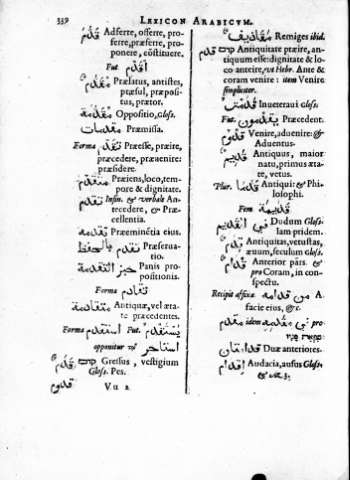 339 LEXICON ARABICVM.
قدّم Adferte, offerre, pro-
ferre, præferre, pro-
ponere, cõstituere.
Fut. اقدّم
مقدّم Prælatus, antistes,
præsul, præposi-
tus, prætor.
مقدّمة Oppositio, Gloss.
مقدمات Præmissa.
Forma تقدّم Præesse, præire,
præcedere, præuenire:
præsidere.
متقدّم Præiens, loco, tem-
pore & dignitate.
تقدّم Infin. & verbale An-
tecedere, & Præ-
cellentia.
تقدمه Præeminētia eius.
تقدم بالحفظ Præserua-
tio.
خبز التقدمة Panis pro-
positionis.
Forma تقادم
متقادمة Antiquæ, vel æta-
te præcedentes.
Forma استقدم Fut. يستقدم
opponitur τῷ استاخر
قدم קדם Gressus, vestigium
Gloss. Pes.
V u 2 قدوم
مقاديف Remiges ibid.
قدم קדם Antiquitate præire, an-
tiquum esse: dignitate & lo-
co anteire, vt Hebr. Ante &
coram venire: item Venire
simpliciter.
قدمت Inueteraui Gloss.
Fut. يقدمون Præcedent.
قدوم Venire, aduenire: &
Aduentus.
قديم Antiquus, maior
natu, primus æta-
te, vetus.
Plur. قدما Antiqui: & Phi-
losophi.
Fem. قديمة
في القديم Dudum Gloss.
Iam pridem.
قدم Antiquitas, vetustas,
æuum, seculum Gloss.
قدّام Anterior pars. &
pro Coram, in con-
spectu.
Recipit affixa: من قدامه A
facie eius, &c.
مقدم idem في مقدمه pro
قدامتان Duæ anteriores.
اقدام Audacia, ausus Gloss.